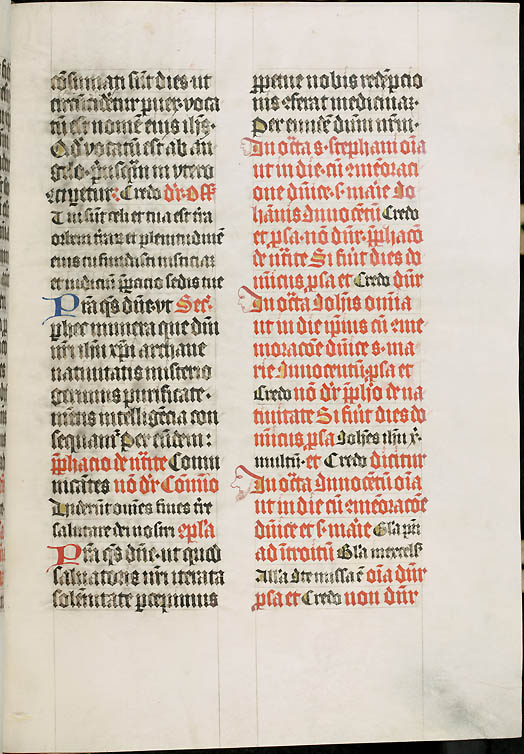 cōsumati sūt dies ut
circūcidetur puer voca
tū est nomē eius ihs
Qd vocatū est ab an
gelo priusquā in utero
conciperetur Credo dr Off
Tui sūt celi et tua est trā
orbem trar et plenitudinē
eius tu fundasti iusticiar
et iudiciū ppacio sedis tue
Pra qs dne ut Secr
phec munera que dni
nri ihu xpi archane
natiuitatis misterio
gerimus purificate
mentis intelligēcia con
sequamr Per eūdem
pphacio de nrite Comu
nicātes nō dr Cōmuio
Viderūt omnes fines tre
salutare dei nostri cpla
Pra qs dne ut quod
saluatoris nri iterata
solēnitate pcepimus
ppetue nobis redēpcio
nis cferat medicinar
Per eundē dnm nrm
In octa s stephani oīa
ut in die cū cmēorati
one dnice s marie Jo
hānis Innocētū Credo
et psa nō dnr pphacō
de nrite Si fūt dies do
minicus psa et Credo dnr
In octa Johis omnia
ut in die ipius cū cme
moracōe dnice s ma
rie Innocentū psa et
Credo nō dr pphio de na
tiuitate Si fuit dies do
minicus psa Johes ihu x
multū et Credo dicitur
In octa Innocētū oīa
ut in die cū cmēoracōe
dnice et s marie Gla pri
ad ītroitū Gla in excels
Alla Ite missa ē oīa dnr
psa et Credo non dnr